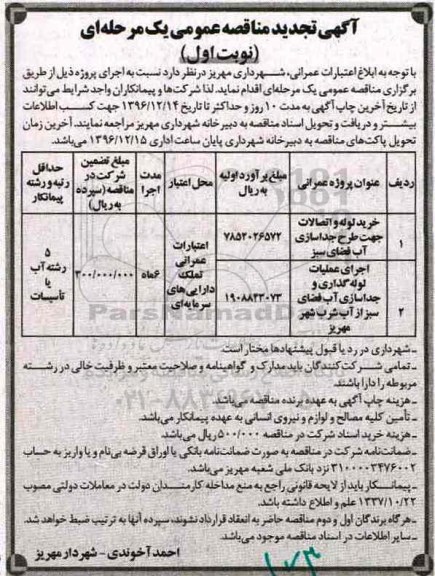 آگهی تجدید مناقصه عمومی یک مرحله‌ای
(نوبت اول)
با توجه به ابلاغ اعتبارات عمرانی، شهرداری مهریز در نظر دارد نسبت به اجرای پروژه ذیل از طریق
برگزاری مناقصه عمومی یک مرحله‌ای اقدام نماید. لذا شرکت‌ها و پیمانکاران واجد شرایط می‌توانند
از تاریخ آخرین چاپ آگهی به مدت ۱۰ روز و حداکثر تا تاریخ ۱۳۹۶/۱۲/۱۴ جهت کسب اطلاعات
بیشتر و دریافت و تحویل اسناد مناقصه به دبیرخانه شهرداری مهریز مراجعه نمایند. آخرین زمان
تحویل پاکت‌های مناقصه به دبیرخانه شهرداری پایان ساعت اداری ۱۳۹۶/۱۲/۱۵ می‌باشد.
ردیف
عنوان پروژه عمرانی
مبلغ برآورد اولیه
به ریال
محل اعتبار
مدت
اجرا
مبلغ تضمین
شرکت در
مناقصه (سپرده
به ریال)
حداقل
رتبه و رشته
پیمانکار
۱
خرید لوله و اتصالات
جهت طرح جداسازی
آب فضای سبز
۷۸۵۲۰۲۶۵۷۲
۲
اجرای عملیات
لوله گذاری و
جداسازی آب فضای
سبز از آب شرب شهر
مهریز
۱۹۰۸۸۳۳۰۷۳
اعتبارات
عمرانی
تملک
دارایی‌های
سرمایه‌ای
۶ ماه
۳۰۰/۰۰۰/۰۰۰
۵
رشته آب
یا
تأسیسات
ـ شهرداری در رد یا قبول پیشنهادها مختار است.
ـ تمامی شرکت‌کنندگان باید مدارک و گواهینامه و صلاحیت معتبر و ظرفیت خالی در رشته
مربوطه را دارا باشند.
ـ هزینه چاپ آگهی به عهده برنده مناقصه می‌باشد.
ـ تأمین کلیه مصالح و لوازم و نیروی انسانی به عهده پیمانکار می‌باشد.
ـ هزینه خرید اسناد شرکت در مناقصه ۵۰۰/۰۰۰ ریال می‌باشد.
ـ ضمانت‌نامه شرکت در مناقصه به صورت ضمانت‌نامه بانکی یا اوراق قرضه بی‌نام و یا واریز به حساب
۳۱۰۰۰۰۳۴۷۶۰۰۲ نزد بانک ملی شعبه مهریز می‌باشد.
ـ پیمانکار باید از لایحه قانونی راجع به منع مداخله کارمندان دولت در معاملات دولتی مصوب
۱۳۳۷/۱۰/۲۲ علم و اطلاع داشته باشد.
ـ هرگاه برندگان اول و دوم مناقصه حاضر به انعقاد قرارداد نشوند، سپرده آنها به ترتیب ضبط خواهد شد.
ـ سایر اطلاعات در اسناد مناقصه موجود می‌باشد.
احمد آخوندی - شهردار مهریز